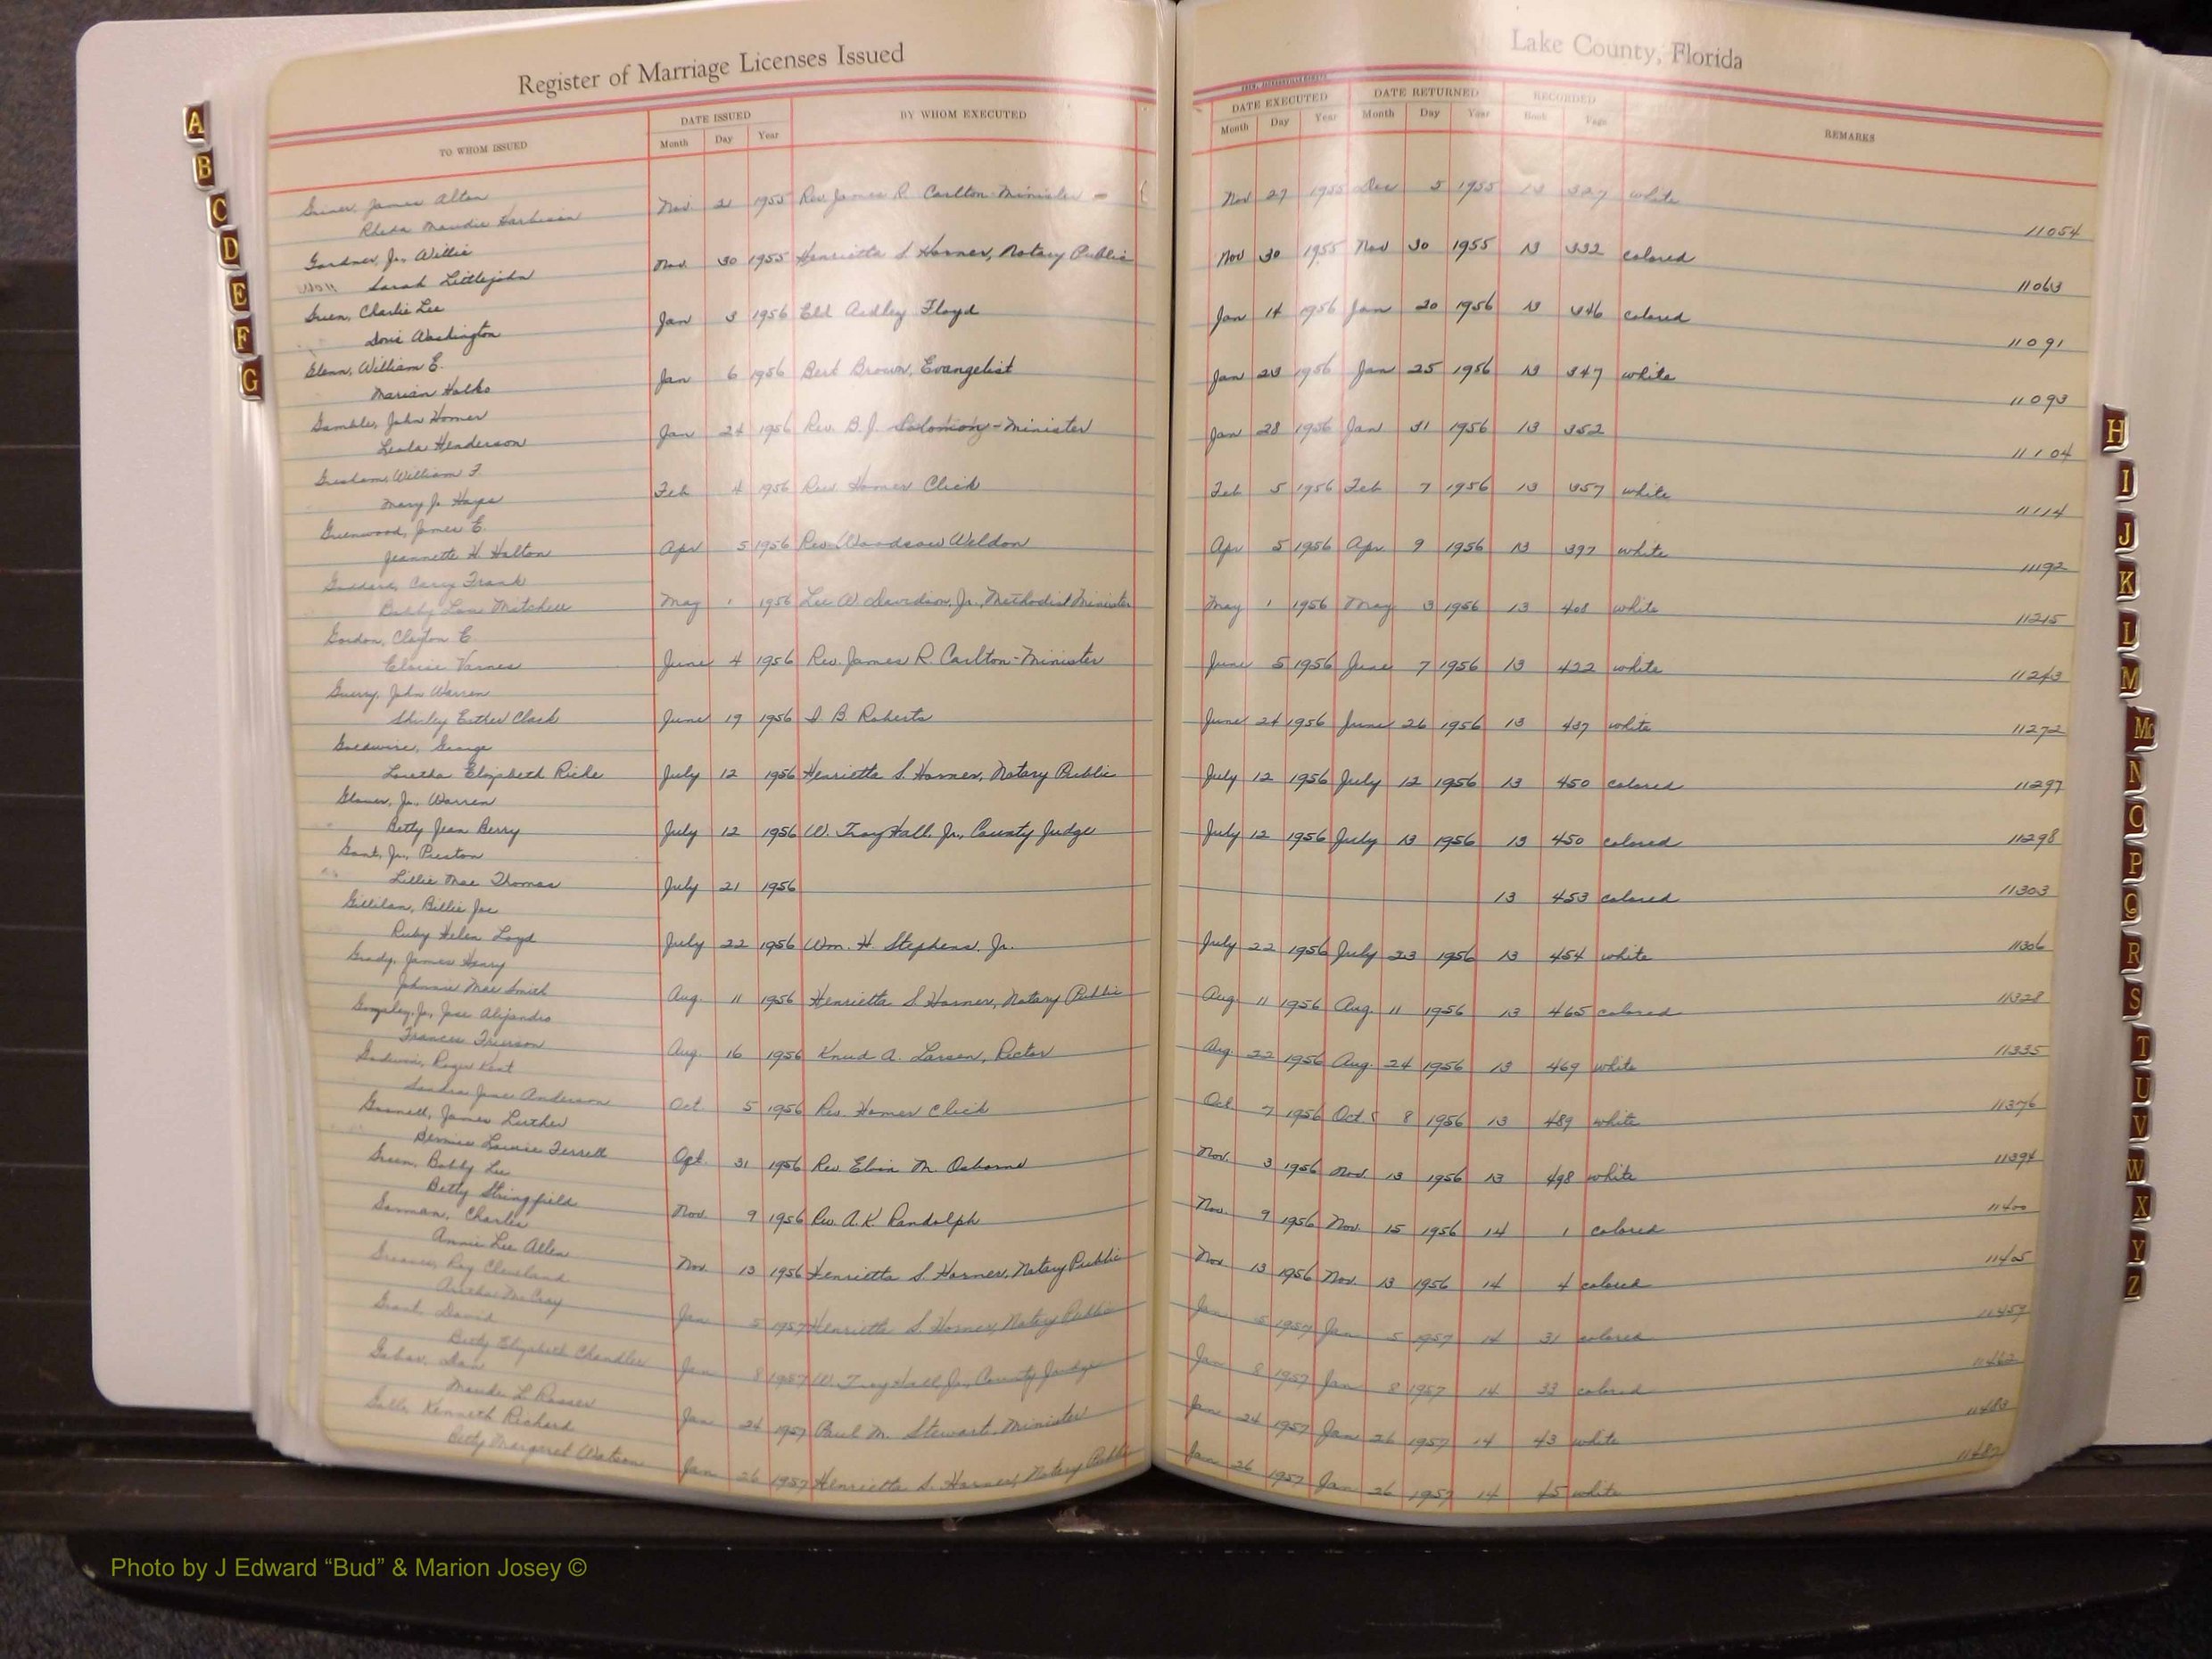 Register of Marriage Licenses Issued
Lake County, Florida
TO WHOM ISSUED
DATE ISSUED
Month Day Year
BY WHOM EXECUTED
DATE EXECUTED
Month Day Year
DATE RETURNED
Month Day Year
RECORDED
Book Page
REMARKS
Griner, James Alton
Rheda Maudie Harbison Nov 21 1955 Rev James R. Carlton-Minister - Nov 27 1955 Dec 5 1955 13 327 white 11054
Gardner, Jr., Willie
Sarah Littlejohn Nov. 30 1955 Henrietta S. Horner, Notary Public Nov 30 1955 Nov 30 1955 13 332 colored 11063
Green, Charlie Lee
Doris Washington Jan 3 1956 Eld Ardley Floyd Jan 14 1956 Jan 20 1956 13 346 colored 11091
Glenn, William E.
Marian Jan 6 1956 Bert Brown, Evangelist Jan 23 1956 Jan 25 1956 13 347 white 11093
Gamble, John Homer
Leola Henderson Jan 24 1956 Rev. B.J. Solomon-Minister Jan 28 1956 Jan 31 1956 13 352 11104
Gresham, William F.
Mary J. Hays Feb 4 1956 Rev Homer Click Feb 5 1956 Feb 7 1956 13 357 white 11114
Greenwood, James E.
Jeannette H. Halton Apr 5 1956 Rev Woodrow Weldon Apr 5 1956 Apr 9 1956 13 397 white 11192
Goddard, Cary Frank
Bobby Lou Mitchell May 1 1956 Lee W. Davidson, Jr., Methodist Minister May 1 1956 May 3 1956 13 408 white 11215
Gordon, Clayton E.
Eloise Varnes June 4 1956 Rev. James R. Carlton-Minister June 5 1956 June 7 1956 13 422 white 11243
Guerry, John Warren
Shirley Esther Clark June 19 1956 I B Roberts June 24 1956 June 26 1956 13 437 white 11272
Goldwire, George
Loretha Elizabeth Riche July 12 1956 Henrietta S. Horner, Notary Public July 12 1956 July 12 1956 13 450 colored 11297
Glover, Jr., Warren
Betty Jean Berry July 12 1956 W. Troy Hall, Jr., County Judge July 12 1956 July 13 1956 13 450 colored 11298
Gant, Jr., Preston
Lillie Mae Thomas July 21 1956 13 453 colored 11303
Gillilan, Billie Joe
Ruby Helen Loyd July 22 1956 Wm. H. Stephens, Jr. July 22 1956 July 23 1956 13 454 white 11306
Grady, James Henry
Johnnie Mae Smith Aug. 11 1956 Henrietta S. Horner, Notary Public Aug 11 1956 Aug. 11 1956 13 465 colored 11328
Gonzalez, Jr., Jose Alejandro
Frances Frierson Aug. 16 1956 Knud A. Larsen, Rector Aug. 22 1956 Aug. 24 1956 13 469 white 11335
Godwin, Roger Kent
Sandra Jane Anderson Oct. 5 1956 Rev. Homer Click Oct. 7 1956 Oct. 8 1956 13 489 white 11376
Gosnell, James Luther
Bernice Ferrell Oct. 31 1956 Rev Elvin M. Osborne Nov. 3 1956 Nov. 13 1956 13 498 white 11394
Green, Bobby Lee
Betty Stringfield Nov. 9 1956 Rev A.K Randolph Nov. 9 1956 Nov. 15 1956 14 1 colored 11400
Gorman, Charlie
Annie Lee Allen Nov. 13 1956 Henrietta S. Horner, Notary Public Nov 13 1956 Nov. 13 1956 14 4 colored 11405
Roy Cleveland
McCray Jan 5 1957 Henrietta S. Horner, Notary Public Jan 5 1957 Jan 5 1957 14 31 colored 11457
Grant, David
Betty Elizabeth Chandler Jan 8 1957 W. Troy Hall Jr., County Judge Jan 8 1957 Jan 8 1957 14 33 colored 11462
Dan
Maude L. Rosser Jan 24 1957 Paul M. Stewart, Minister Jan 24 1957 Jan 26 1957 14 43 white 11483
Kenneth Richard
Betty Margaret Watson Jan 26 1957 Henrietta S. Horner, Notary Public Jan 26 1957 Jan 26 1957 14 45 white 11487
A
B
C
D
E
F
G
H
I
J
K
L
M
Mc
N
O
P
Q
R
S
T
U
V
W
X
Y
Z
Photo by J Edward “Bud” & Marion Josey ©